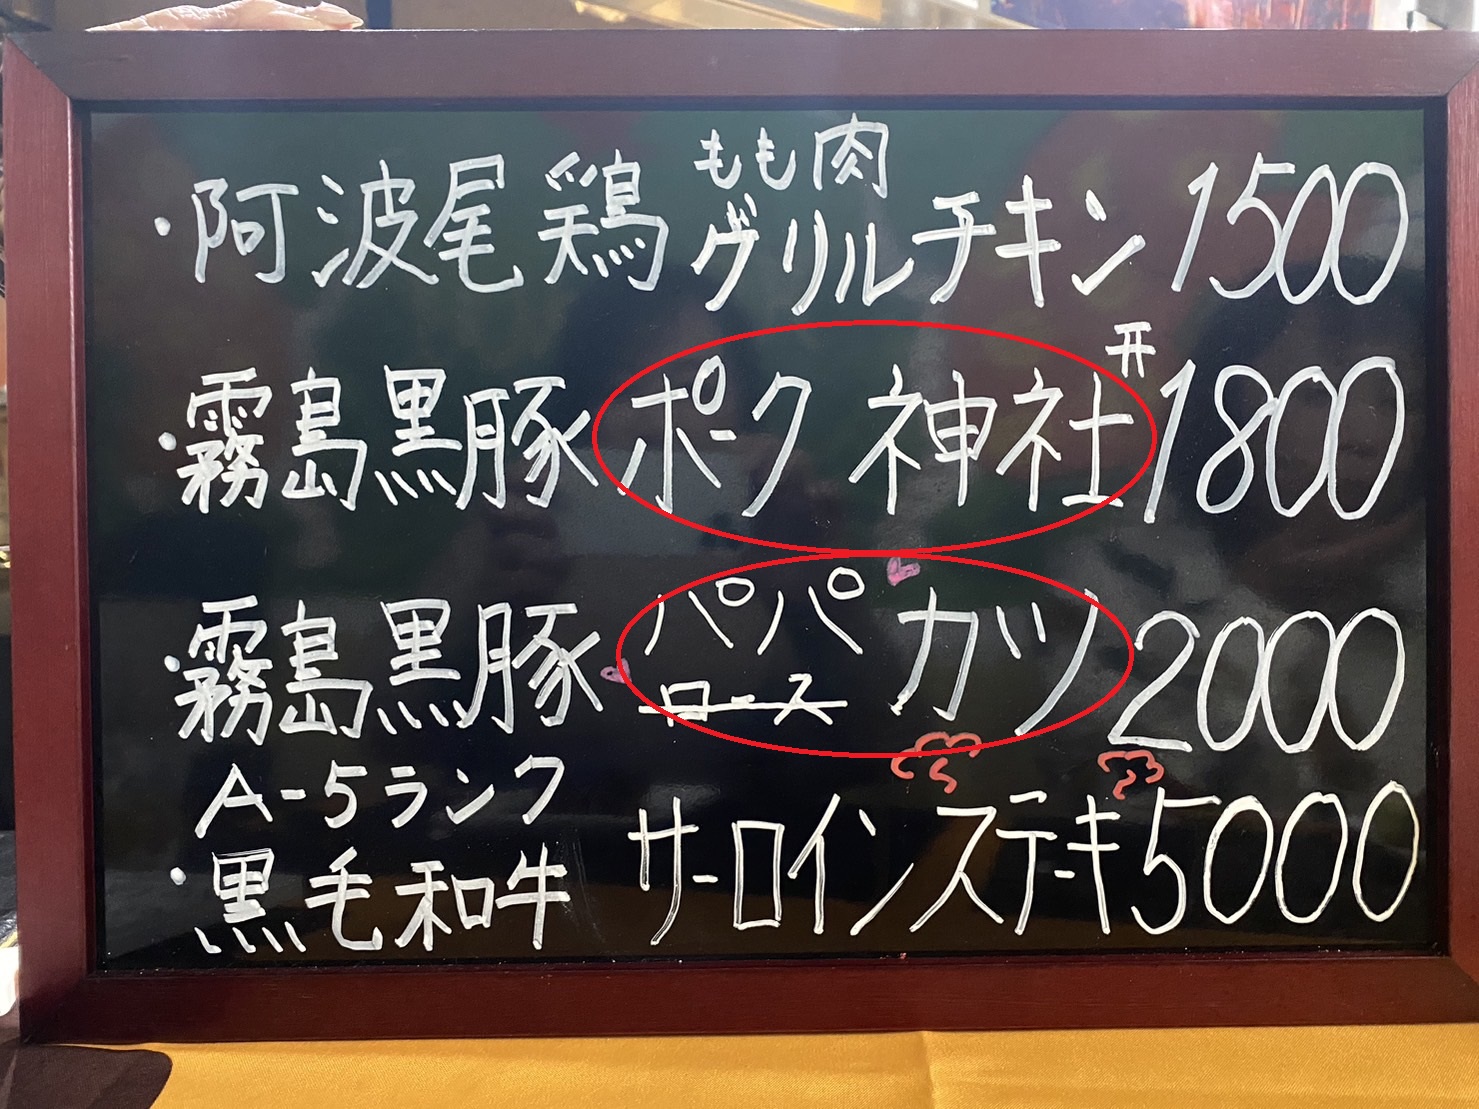 もも肉
・阿波尾鶏 グリルチキン 1500
・霧島黒豚 ポーク 神社 1800
・霧島黒豚 パパ カツ 2000
ロース
A-5ランク
・黒毛和牛 サーロインステーキ 5000